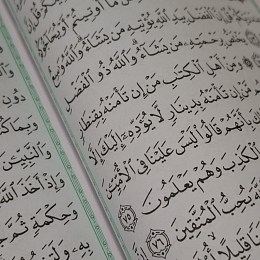 مَآ أُوتِيتُمْ
إِنَّ ٱلْفَضْلَ بِيَدِ ٱللَّهِ يُؤْتِيهِ مَن يَشَآءُ وَٱللَّهُ وَٰسِعٌ
بِرَحْمَتِهِۦ مَن يَشَآءُ وَٱللَّهُ ذُو ٱلْفَضْلِ
وَمِنْ أَهْلِ ٱلْكِتَٰبِ مَنْ إِن تَأْمَنْهُ بِقِنطَارٍ
مَّنْ إِن تَأْمَنْهُ بِدِينَارٍ لَّا يُؤَدِّهِۦٓ إِلَيْكَ إِلَّا
بِأَنَّهُمْ قَالُوا۟ لَيْسَ عَلَيْنَا فِى ٱلْأُمِّيِّـۧنَ
ٱلْكَذِبَ وَهُمْ يَعْلَمُونَ ٧٥
يُحِبُّ ٱلْمُتَّقِينَ ٧٦
قَلِيلًا
دُونِ
وَبِمَا
وَٱلنَّبِيِّـۧنَ
وَإِذْ أَخَذَ ٱللَّهُ
وَحِكْمَةٍ ثُمَّ
بِهِۦ